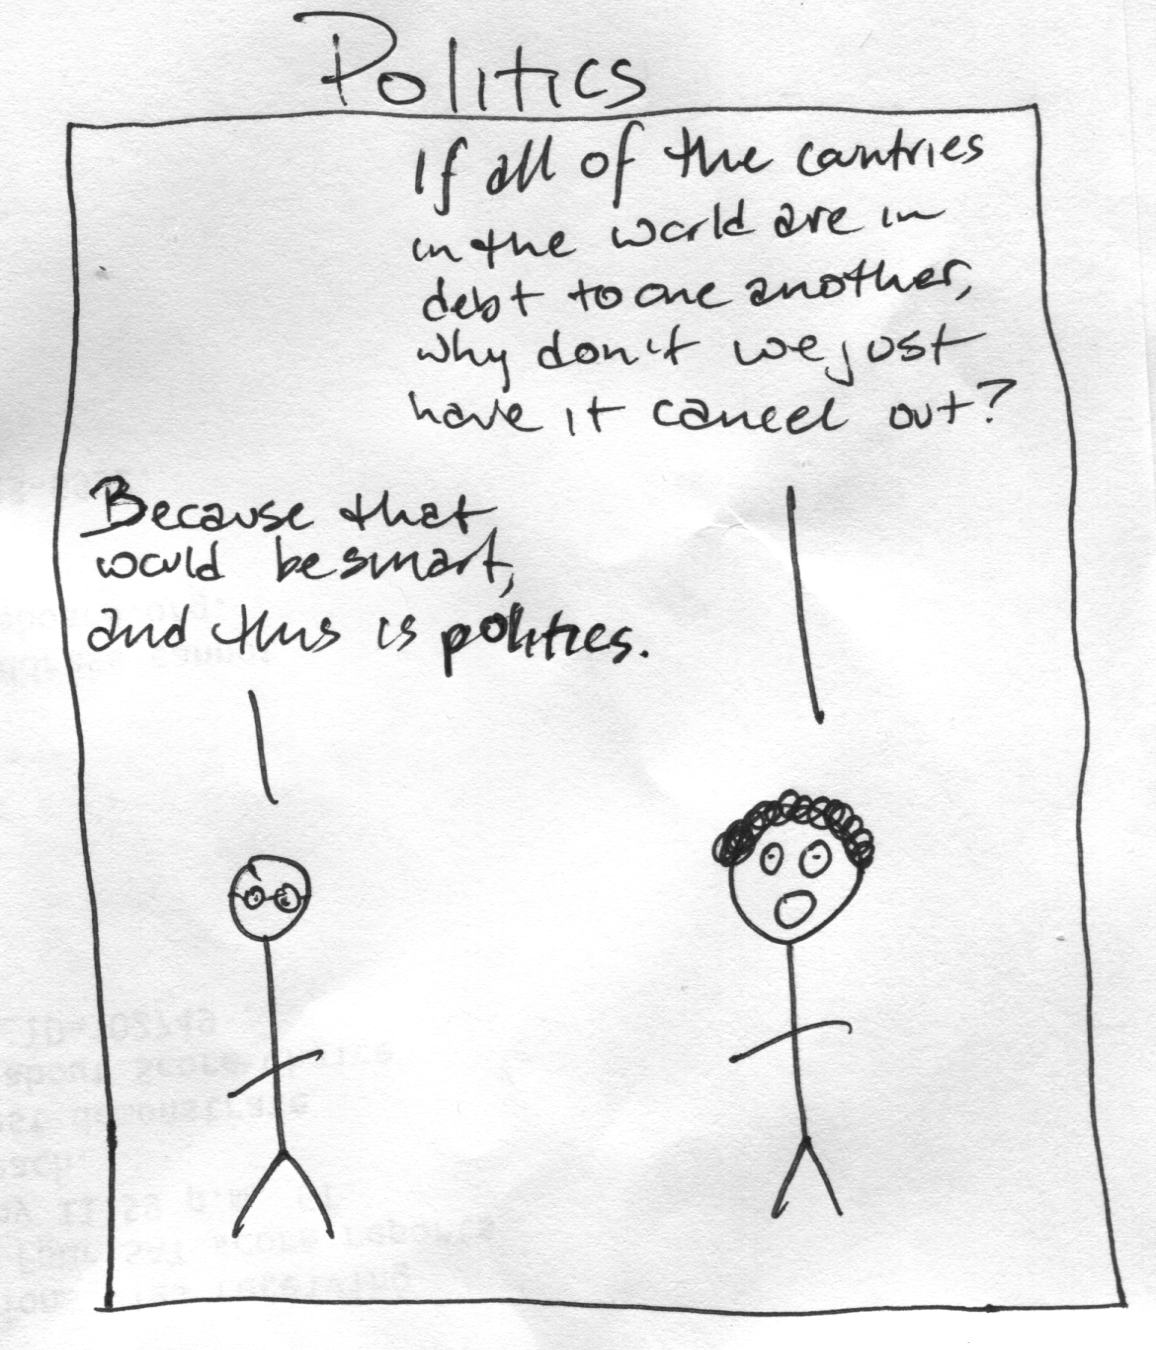 Politics
If all of the countries
in the world are in
debt to one another,
why don't we just
have it cancel out?
Because that
would be smart,
and this is politics.